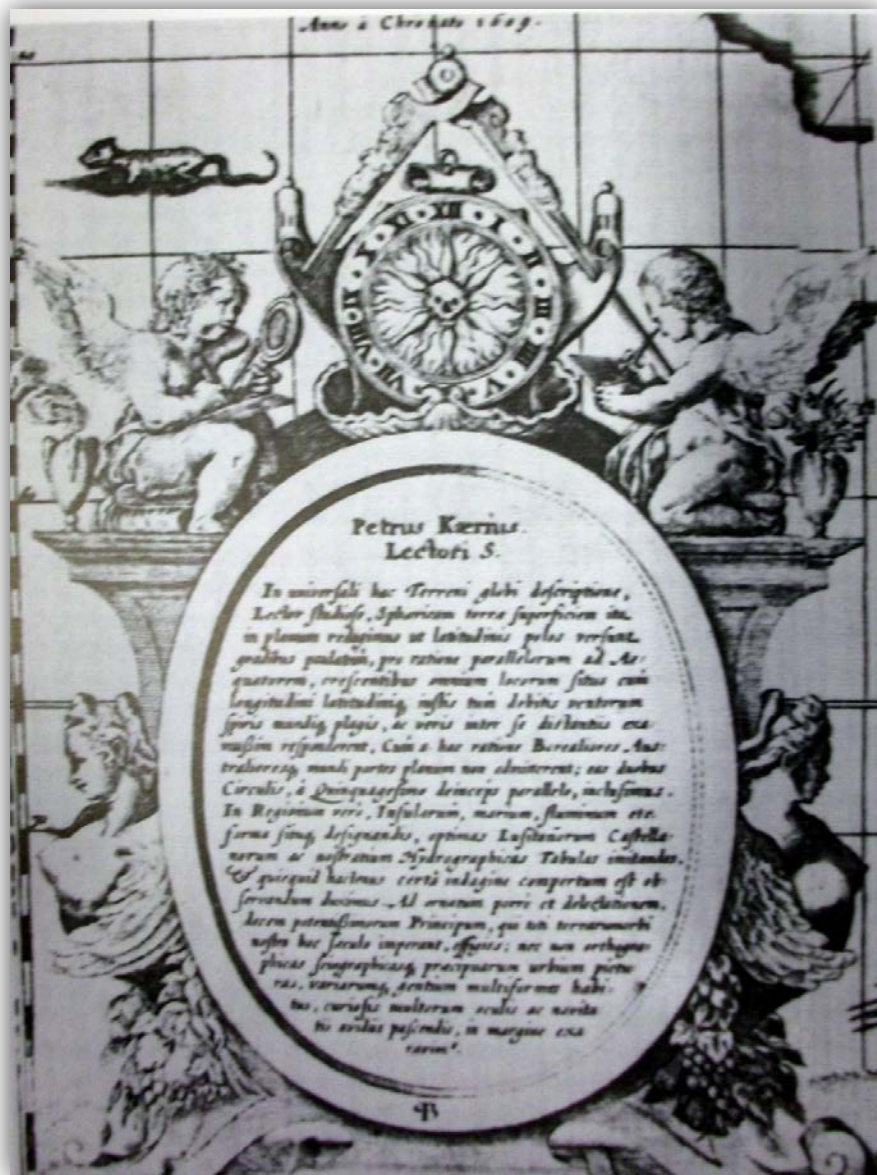 Anno à Chro nato 1609.
XII · I · II · III · IIII · V · VII · VIII · IX · X · XI
Petrus Kærius.
Lectori S.
In universali hac Terreni globi descriptione,
Lector studiose, Sphæricam terræ superficiem ita
in planum redegimus ut latitudinis polos versus
gradibus paulatim, pro ratione parallelorum ad Æ-
quatorem, crescentibus omnium locorum situs cum
longitudini latitudiniq, iustis tum debitis ventorum
spiris mundiq plagis, ac veris inter se distantiis exa
mussim responderent, Cum a hac ratione Borealiores Aus-
tralioresq, mundi partes planum non admitterent; eas duobus
Circulis, à Quinquagesimo deinceps parallelo, inclusimus.
In Regionum vero, Insularum, marium, fluminum etc
forma situq, designandis, optimas Lusitanorum Castella-
norum ac nostratium Hydrographicas Tabulas imitandas,
& quicquid hactenus certâ indagine compertum est ob
servandum duximus. Ad ornatum porro et delectationem,
decem potentissimorum Principum, qui toti terrarum orbi
nostro hoc sæculo imperant, effigies; nec non orthogra-
phicas scenographicasq, præcipuarum urbium pictu
ras, variarumq, gentium multiformes habi-
tus, curiosis multorum oculis ac novita
tis avidis pascendis, in margine exa
ravim⁹.